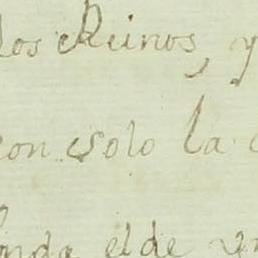 los Reinos, y
con solo la
onda el de